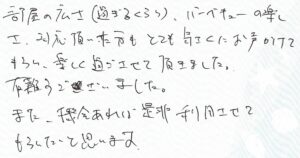 部屋の広さ(過ぎるくらい)、バーベキューの楽し
さ、対応頂いた方もとても気さくにお声かけて
もらい、楽しく過ごさせて頂きました。
有難うございました。
また、機会あれば是非利用させて
もらいたいと思います